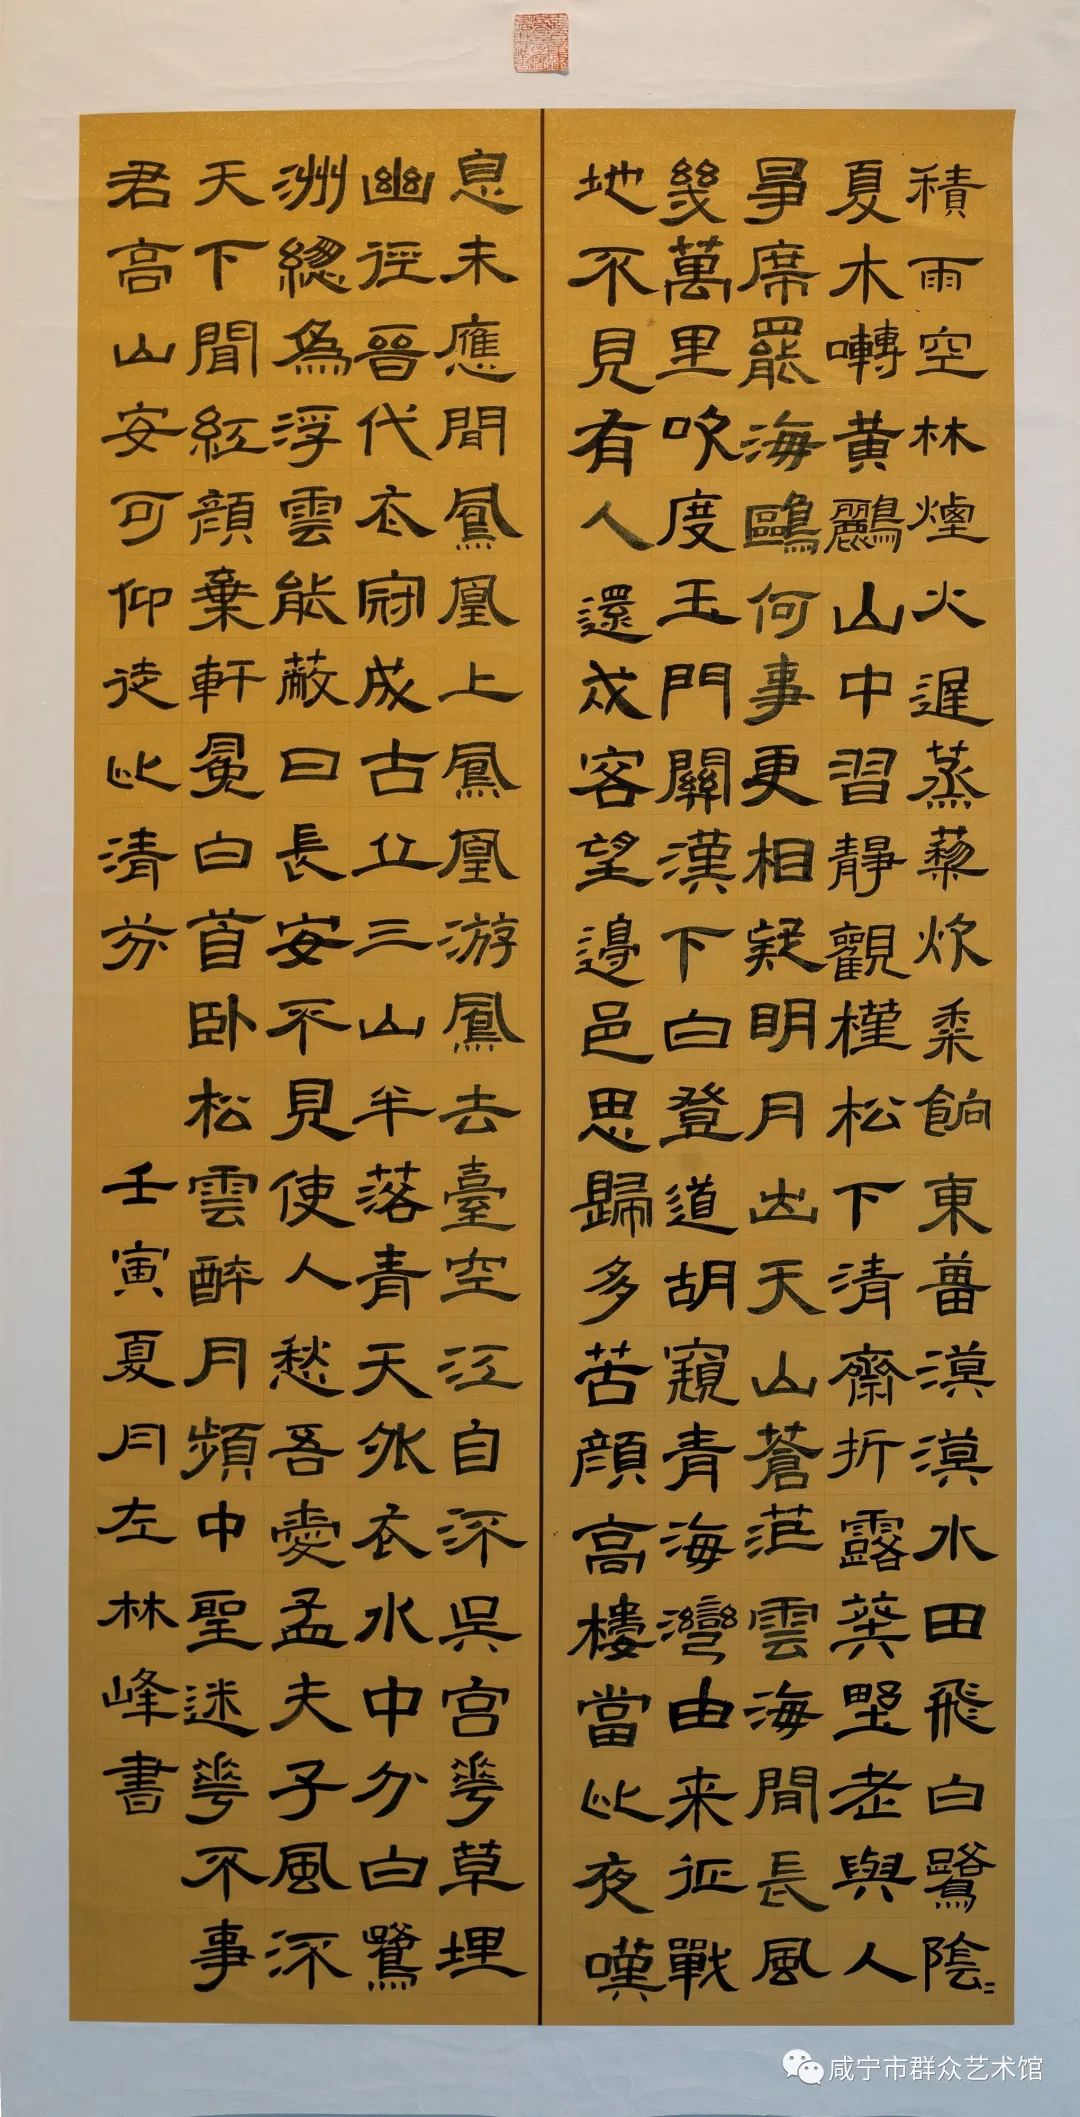 積雨空林煙火遲蒸藜炊黍餉東菑漠漠水田飛白鷺陰〻
夏木囀黃鸝山中習靜觀槿松下清齋折露葵野老與人
爭席罷海鷗何事更相疑明月出天山蒼茫雲海間長風
幾萬里吹度玉門關漢下白登道胡窺青海灣由来征戰
地不見有人還戍客望邊邑思歸多苦顏高樓當此夜嘆
息未應間鳳凰上鳳凰游鳳去臺空江自深吳宮花草埋
幽徑晉代衣冠成古丘三山半落青天外衣水中分白鷺
洲總為浮雲能蔽日長安不見使人愁吾愛孟夫子風深
天下聞紅顏棄軒冕白首臥松雲醉月頻中聖迷花不事
君高山安可仰徒此清芬 壬寅夏月左林峰書
咸宁市群众艺术馆